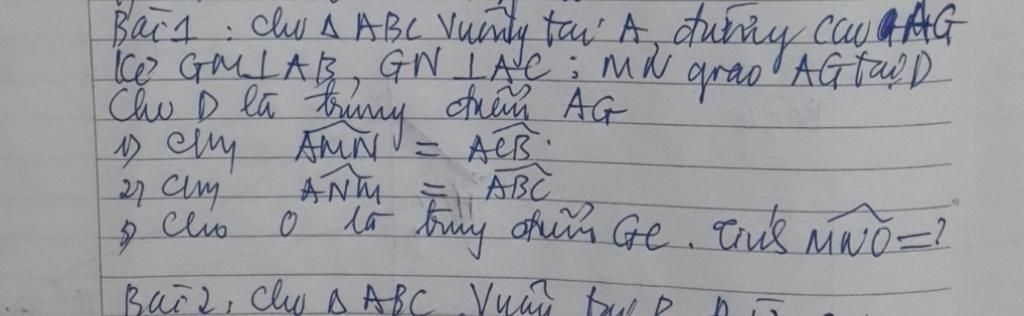 Bài 1 : Cho Δ ABC Vuông tại A, đường cao AG
Kẻ GM⊥AB, GN⊥AC ; MN giao AG tại D
Cho D là trung điểm AG
1) Cm AMN = ACB.
2) Cm ANM = ABC
3) Cho O là trung điểm GC. Tính MNO = ?
Bài 2: Cho Δ ABC Vuông